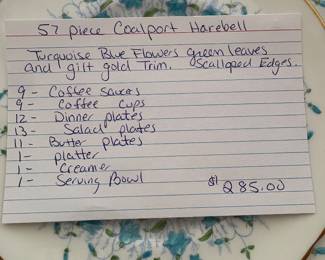 57 piece Coalport Harebell
Turquoise Blue Flowers green leaves
and gilt gold Trim. Scalloped Edges.
9 - Coffee Saucrs
9 - Coffee Cups
12 - Dinner plates
13 - Salad plates
11 - Butter plates
1 - platter
1 - Creamer
1 - Serving Bowl $285.00